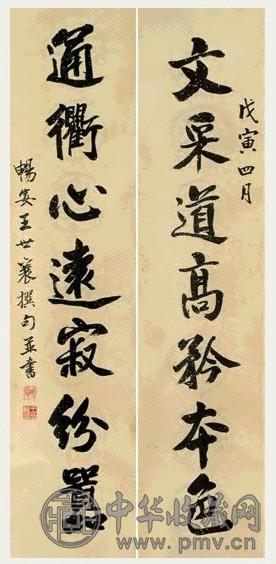 戊寅四月
文采道高矜本色
通衢心遠寂紛囂
暢安王世襄撰句並書
中华收藏网
www.pmv.cn